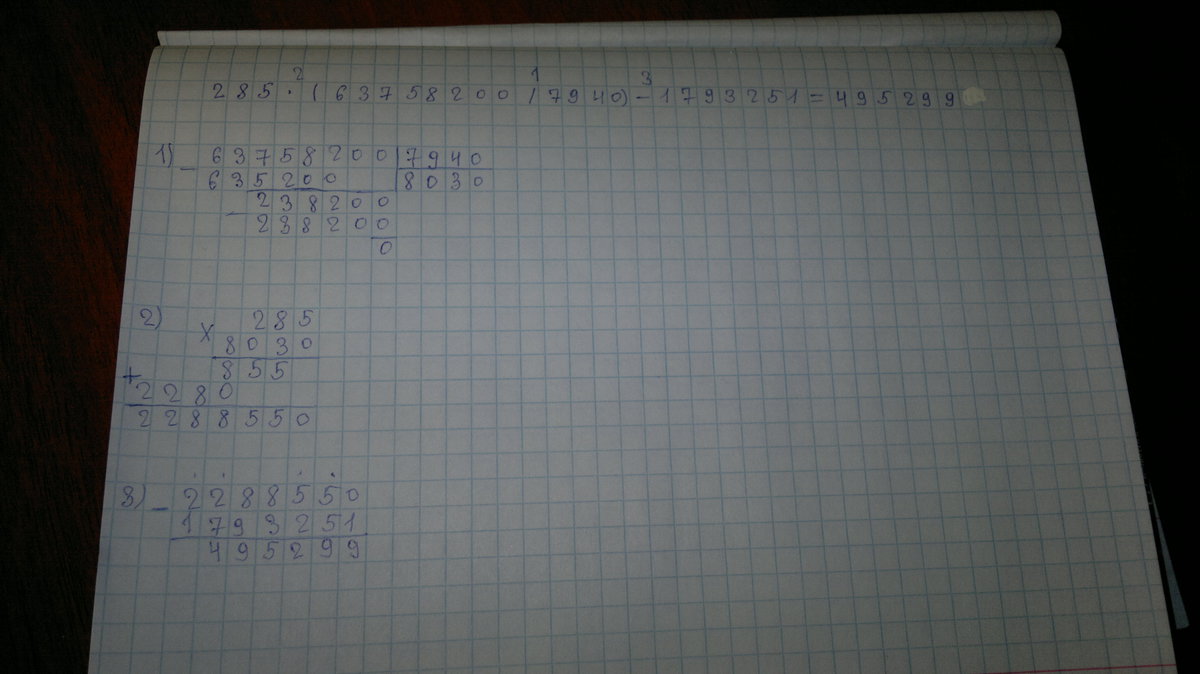 2 1 3
285 · (63758200 / 7940) – 1793251 = 495299
1) – 63758200 | 7940
635200 8030
– 238200
238200
0
2) 285
x 8030
855
+ 2280
2288550
3) – 2288550
1793251
495299